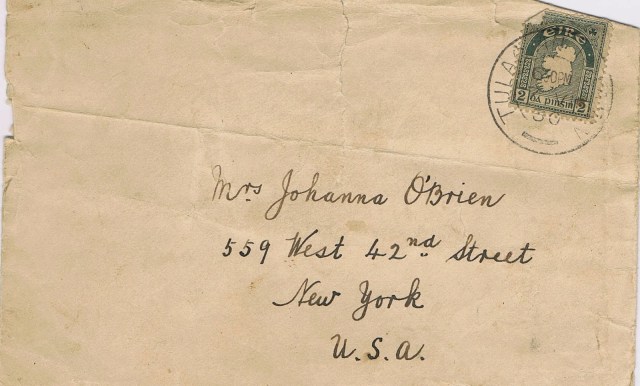 éire
2 dá pinsin 2
TULA
30
Mrs Johanna O'Brien
559 West 42nd Street
New York
U.S.A.